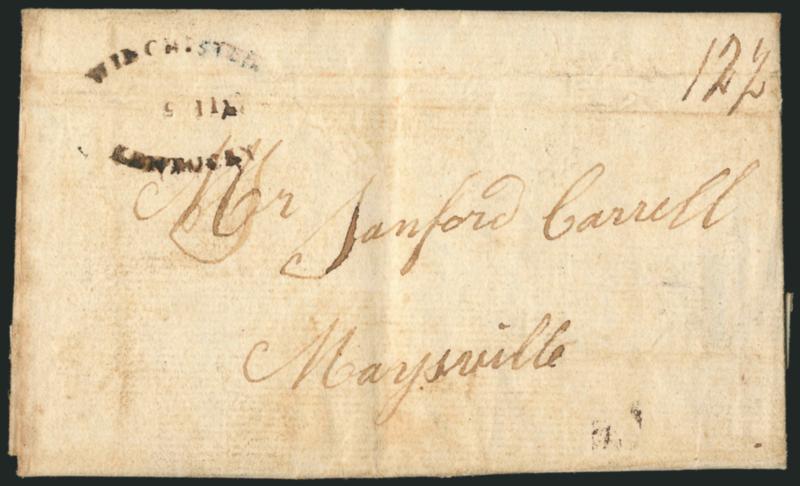 WINCHESTER
KENTUCKY
12½
Mr Sanford Carrell
Maysville